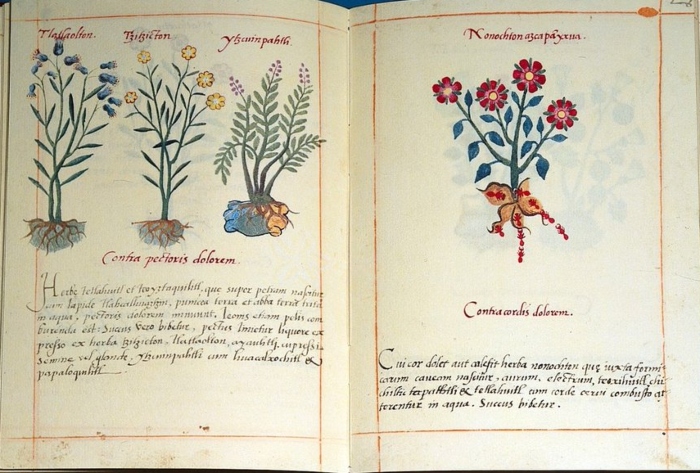 Tlatlaolton.
Tzitzicton.
Ytzcuinpahtli.
Contra pectoris dolorem.
Herbę tetlahuitl et teoyztaquilitl, que super petram nascitur
cum lapide tlahcalhuatzin, punicea terra et alba terra trita
in aqua, pectoris dolorem minuunt. Leonis etiam pelis com
burenda est. Succus vero bibetur, pectus linietur liquore ex
presso ex herba tzitzicton, tlatlaolton, ayauhtli, cupressi
semine vel glande, ytzcuinpahtli cum huacalxochitl &
papaloquilitl.
Nonochton azcapayxua.
Contra cordis dolorem.
Cui cor dolet aut calescit herba nonochton quę iuxta formi
carum caveam nascitur, aurum, electrum, teoxihuitl, chi
chiltic tapachtli & tetlahuitl cum corde cervi combusto at
terentur in aqua. Succus bibetur.